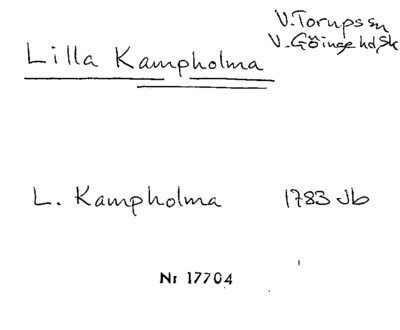 V. Torups sn
V. Göinge hd, Sk
Lilla Kampholma
L. Kampholma 1783 Jb
Nr 17704